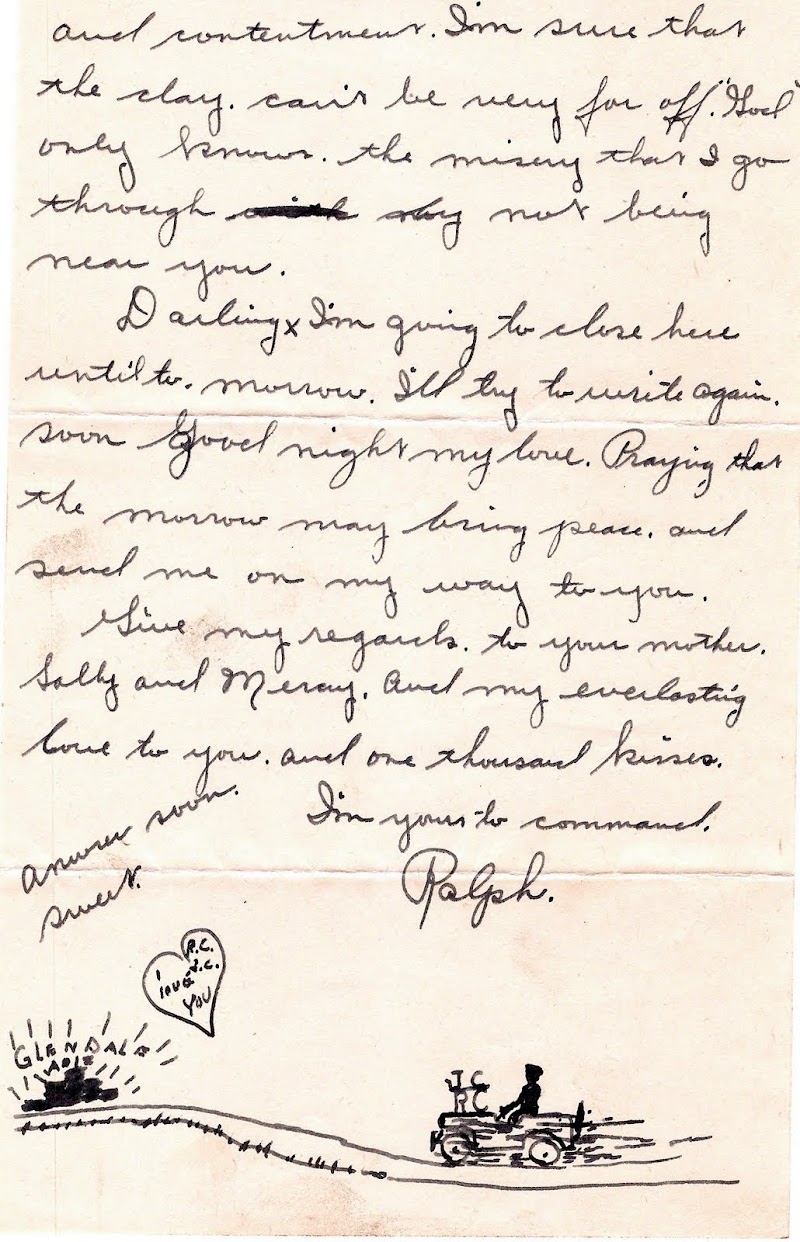 and contentment. I'm sure that
the day. can't be very far off. "God"
only knows. the misery that I go
through by not being
near you.
Darling x I'm going to close here
until to. morrow. I'll try to write again.
soon Good night my love. Praying that
the morrow may bring peace. and
send me on my way to you.
Give my regards. to your mother.
Sally and Mercy. And my everlasting
love to you. and one thousand kisses.
I'm yours to command.
Answer soon.
sweet.
Ralph.
R.C.
J.C.
I
love
YOU
GLENDALE
ARIZ
JC
RC